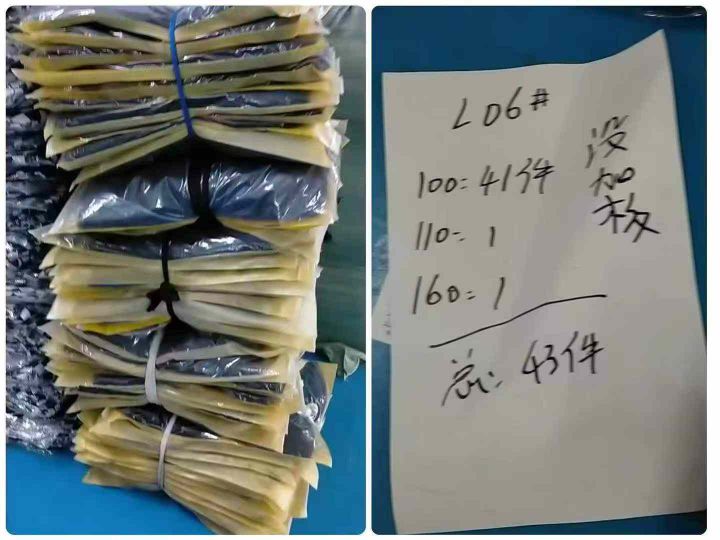 L06#
100=41件
110=1
160=1
总:43件
没加板